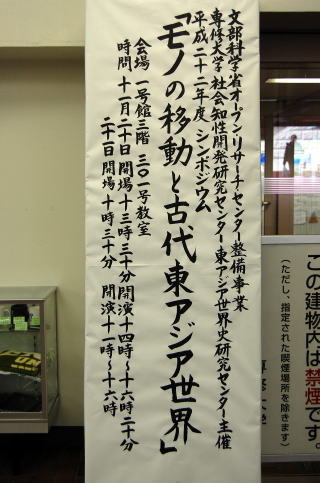 文部科学省オープン・リサーチ・センター整備事業
専修大学社会知性開発研究センター東アジア世界史研究センター主催
平成二十二年度 シンポジウム
「モノの移動と古代東アジア世界」
会場 一号館三階 三〇一号教室
時間 十一月二十日 開場 十三時三十分 開演 十四時〜十六時二十分
二十一日 開場 十時三十分 開演 十一時〜十六時
この建物内は禁煙です。
(ただし、指定された喫煙場所を除きます)
専修大学